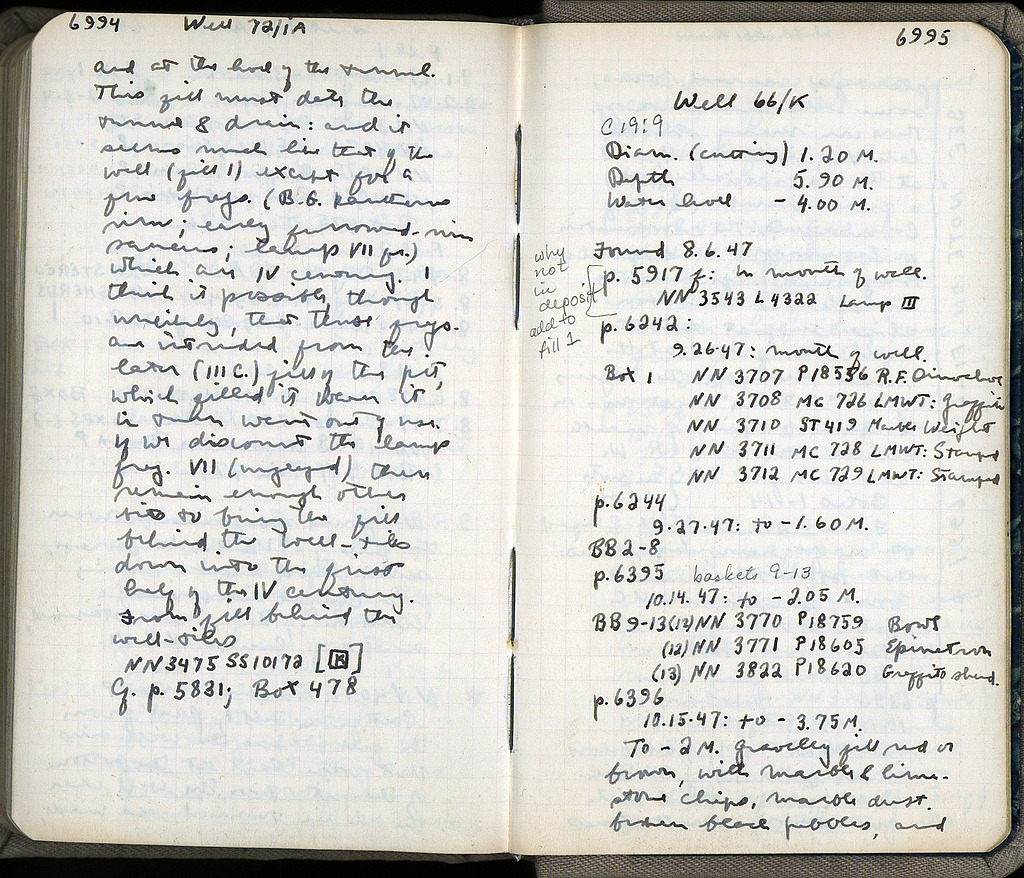 6994 Well 72/1A
and at the end of the tunnel.
This fill must date the
tunnel & drain: and it
seems much like that of the
well (fill 1) except for a
few frags. (B.G. kantharos
rim; early furrowed-rim
saucers; lamp VII fr.)
which are IV century. I
think it possible, though
unlikely, that these frags.
are intruded from the
later (III C.) fill of the pit,
which filled it when it
in turn went out of use.
If we discount the lamp
frag. VII (unglazed) there
remain enough other
to bring the fill
behind the well-tiles
down into the first
half of the IV century.
From fill behind the
well-tiles
NN 3475 SS 10172 [K]
Cf. p. 5831; Box 478
6995
Well 66/K
C 19:9
Diam. (cutting) 1.20 M.
Depth 5.90 M.
Water level - 4.00 M.
Found 8.6.47
p. 5917 f: In mouth of well.
NN 3543 L 4322 Lamp III
why
not
in
deposit
add to
fill 1
p. 6242:
9.26.47: mouth of well.
Box 1 NN 3707 P18536 R.F. Oinochoe
NN 3708 MC 726 LMWT: Graffito
NN 3710 ST 419 Marble Weight
NN 3711 MC 728 LMWT: Stamped
NN 3712 MC 729 LMWT: Stamped
p. 6244
9.27.47: to -1.60 M.
BB 2-8
p. 6395 baskets 9-13
10.14.47: to -2.05 M.
BB 9-13 (12) NN 3770 P18759 Bowl
(12) NN 3771 P18605 Epinetron
(13) NN 3822 P18620 Graffito sherd.
p. 6396
10.15.47: to - 3.75 M.
To - 2 M. gravelly fill red or
brown, with marble & lime-
stone chips, marble dust.
broken black pebbles, and